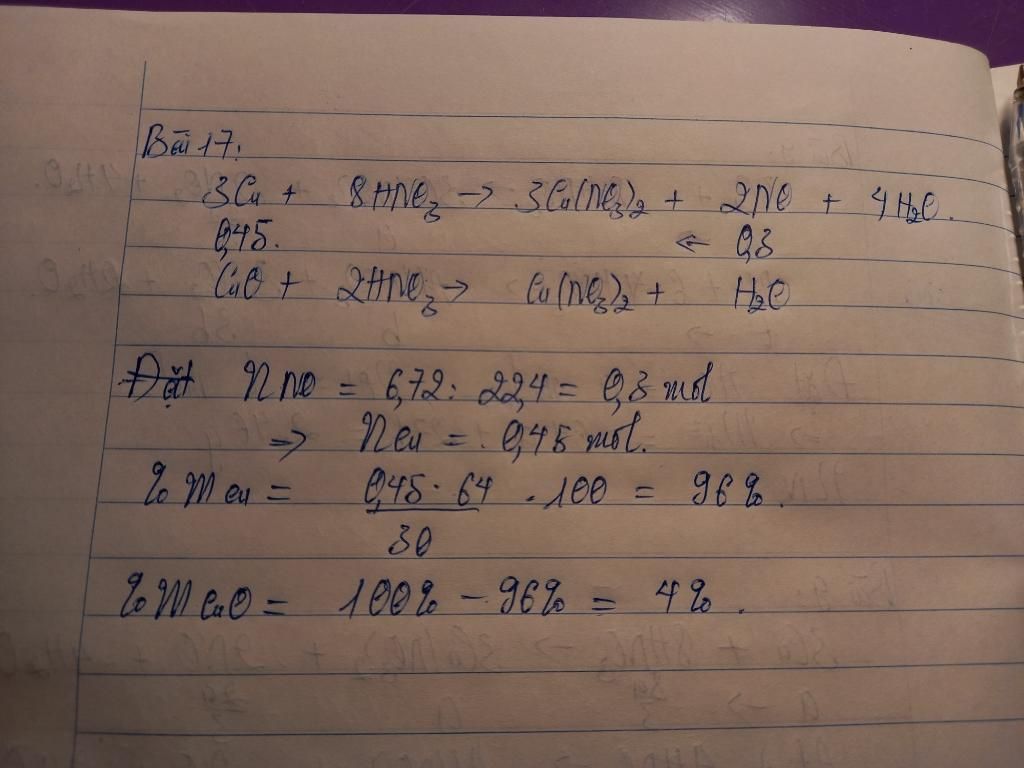 Bài 17:
3Cu + 8HNO3 → 3Cu(NO3)2 + 2NO + 4H2O.
0,45. ← 0,3
CuO + 2HNO3 → Cu(NO3)2 + H2O
Đặt nNO = 6,72 : 22,4 = 0,3 mol
=> nCu = 0,45 mol.
%mCu = 0,45 . 64 . 100 = 96%.
30
%mCuO = 100% - 96% = 4%.